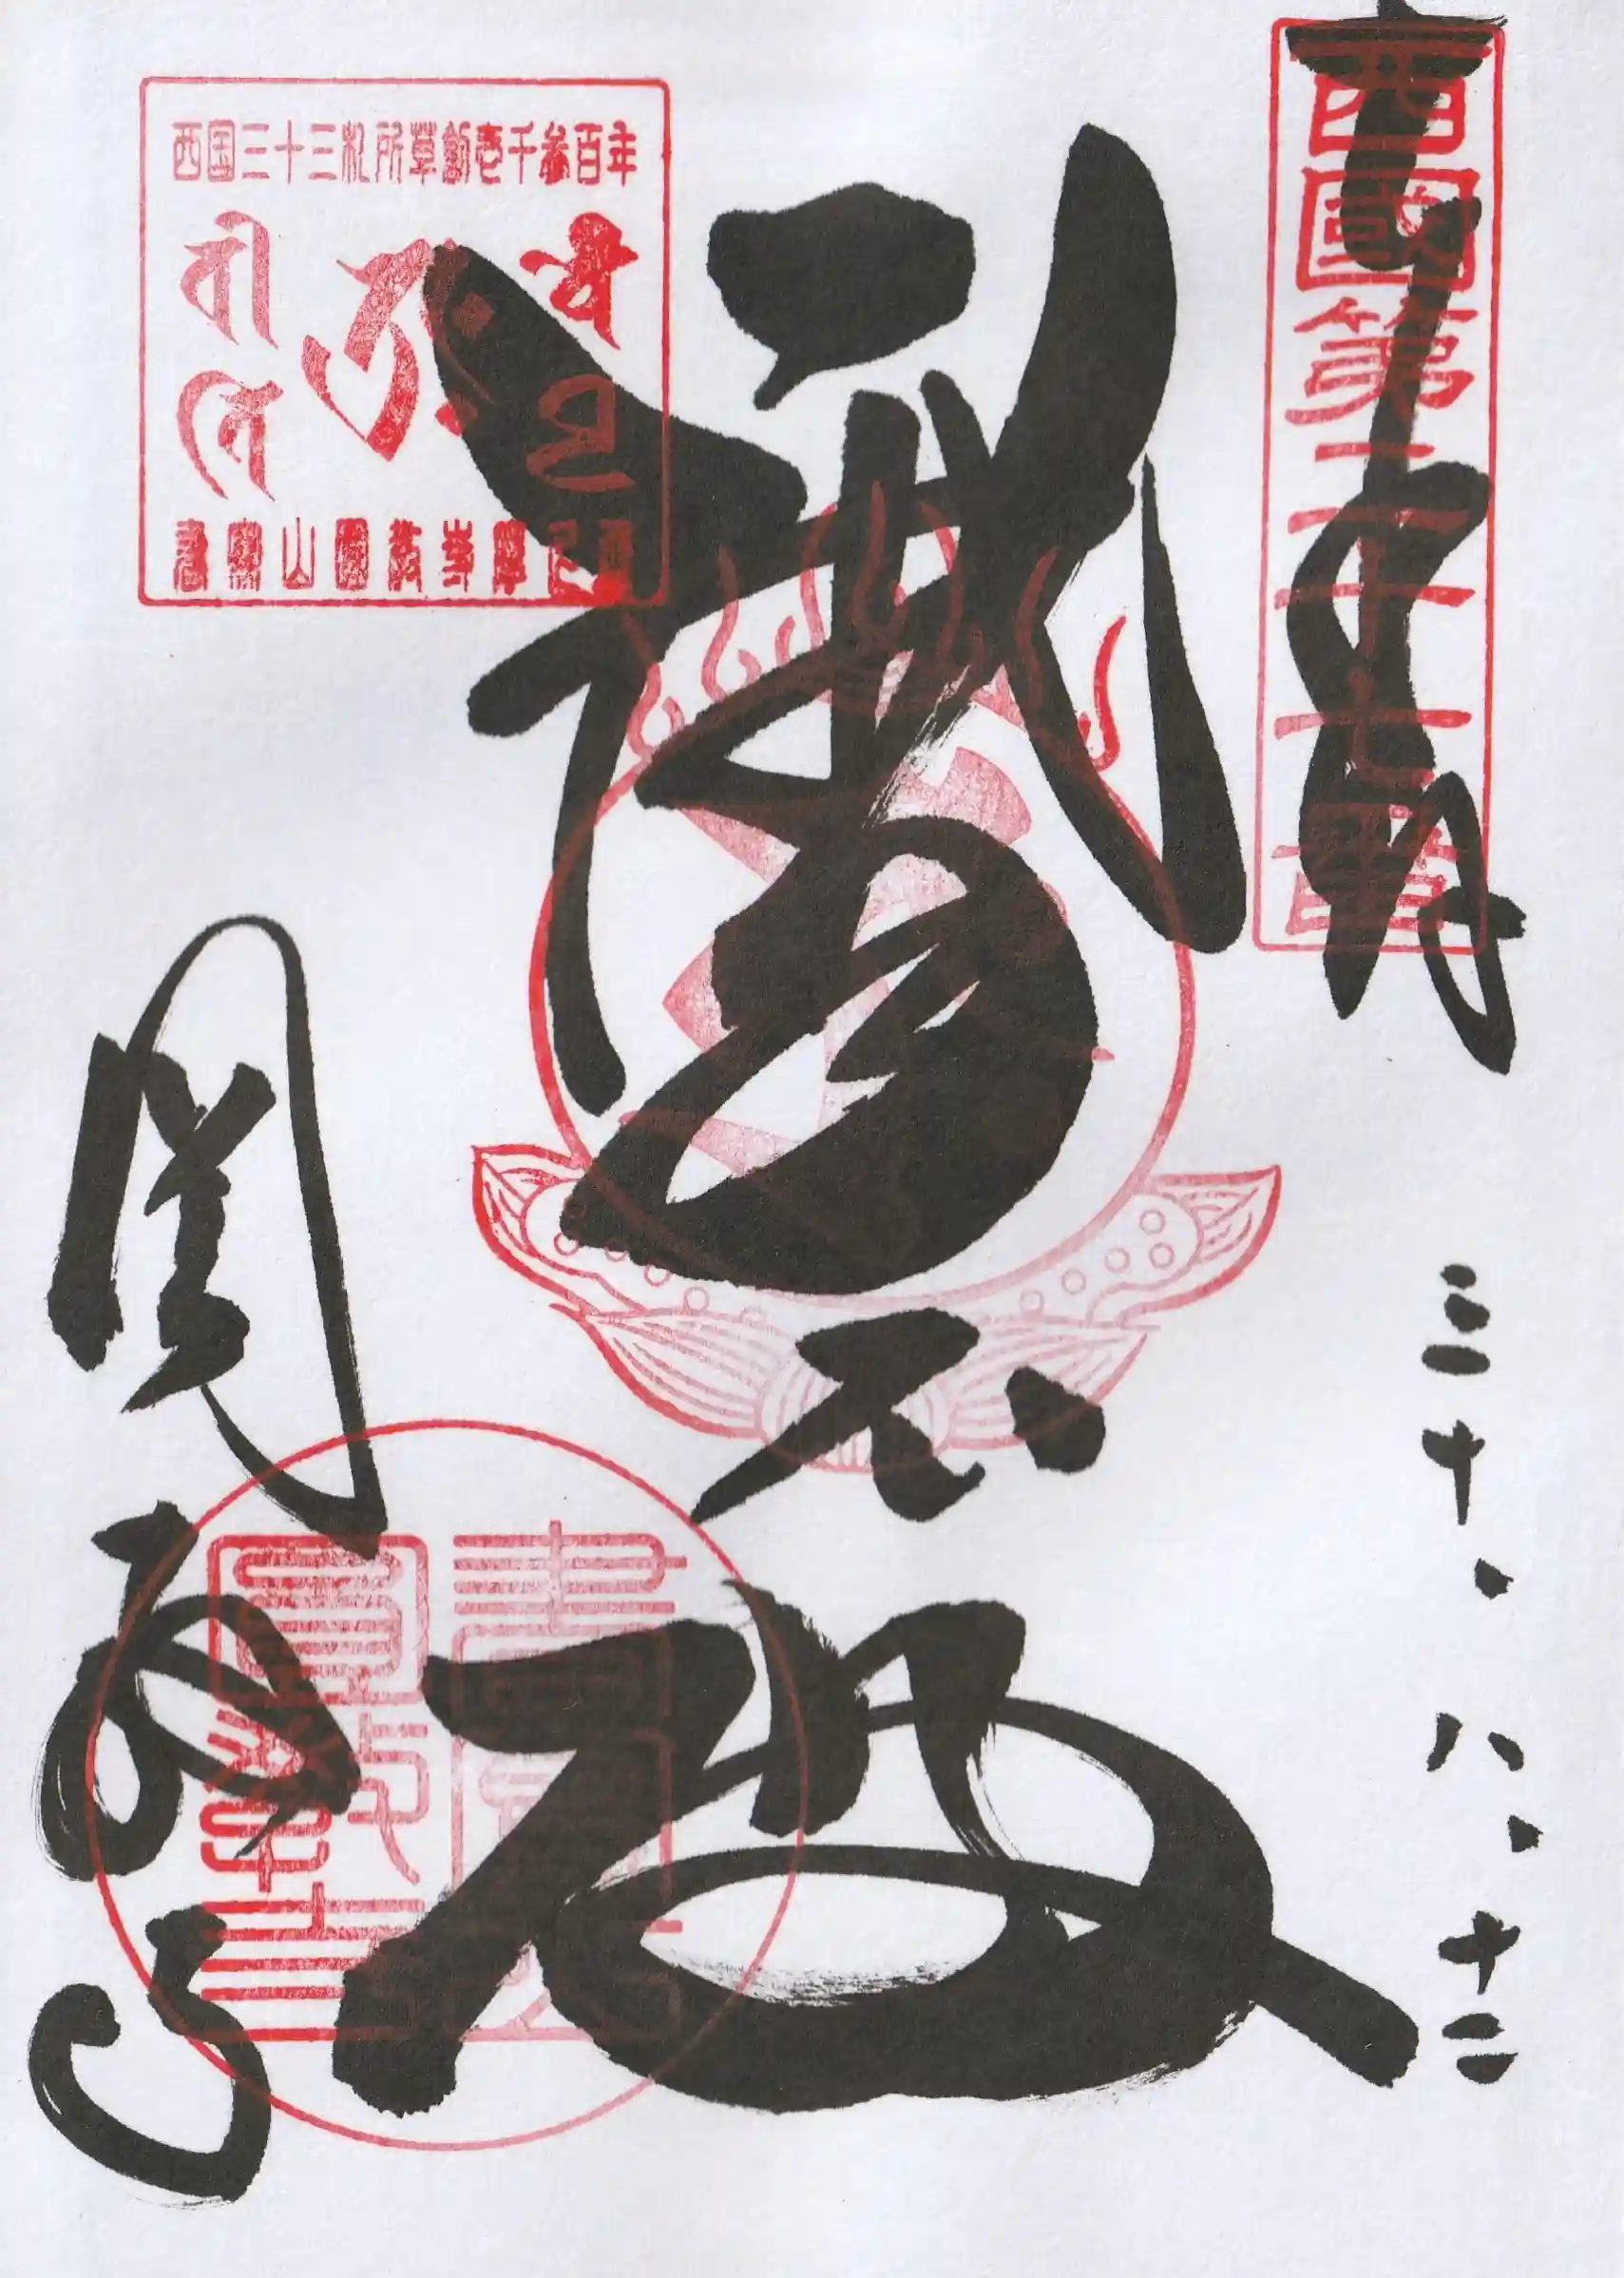 西國第二十七番
奉拝
三十、八、十二
摩尼殿
西国三十三札所草創壱千参百年
書寫山圓教寺摩尼殿
圓教寺